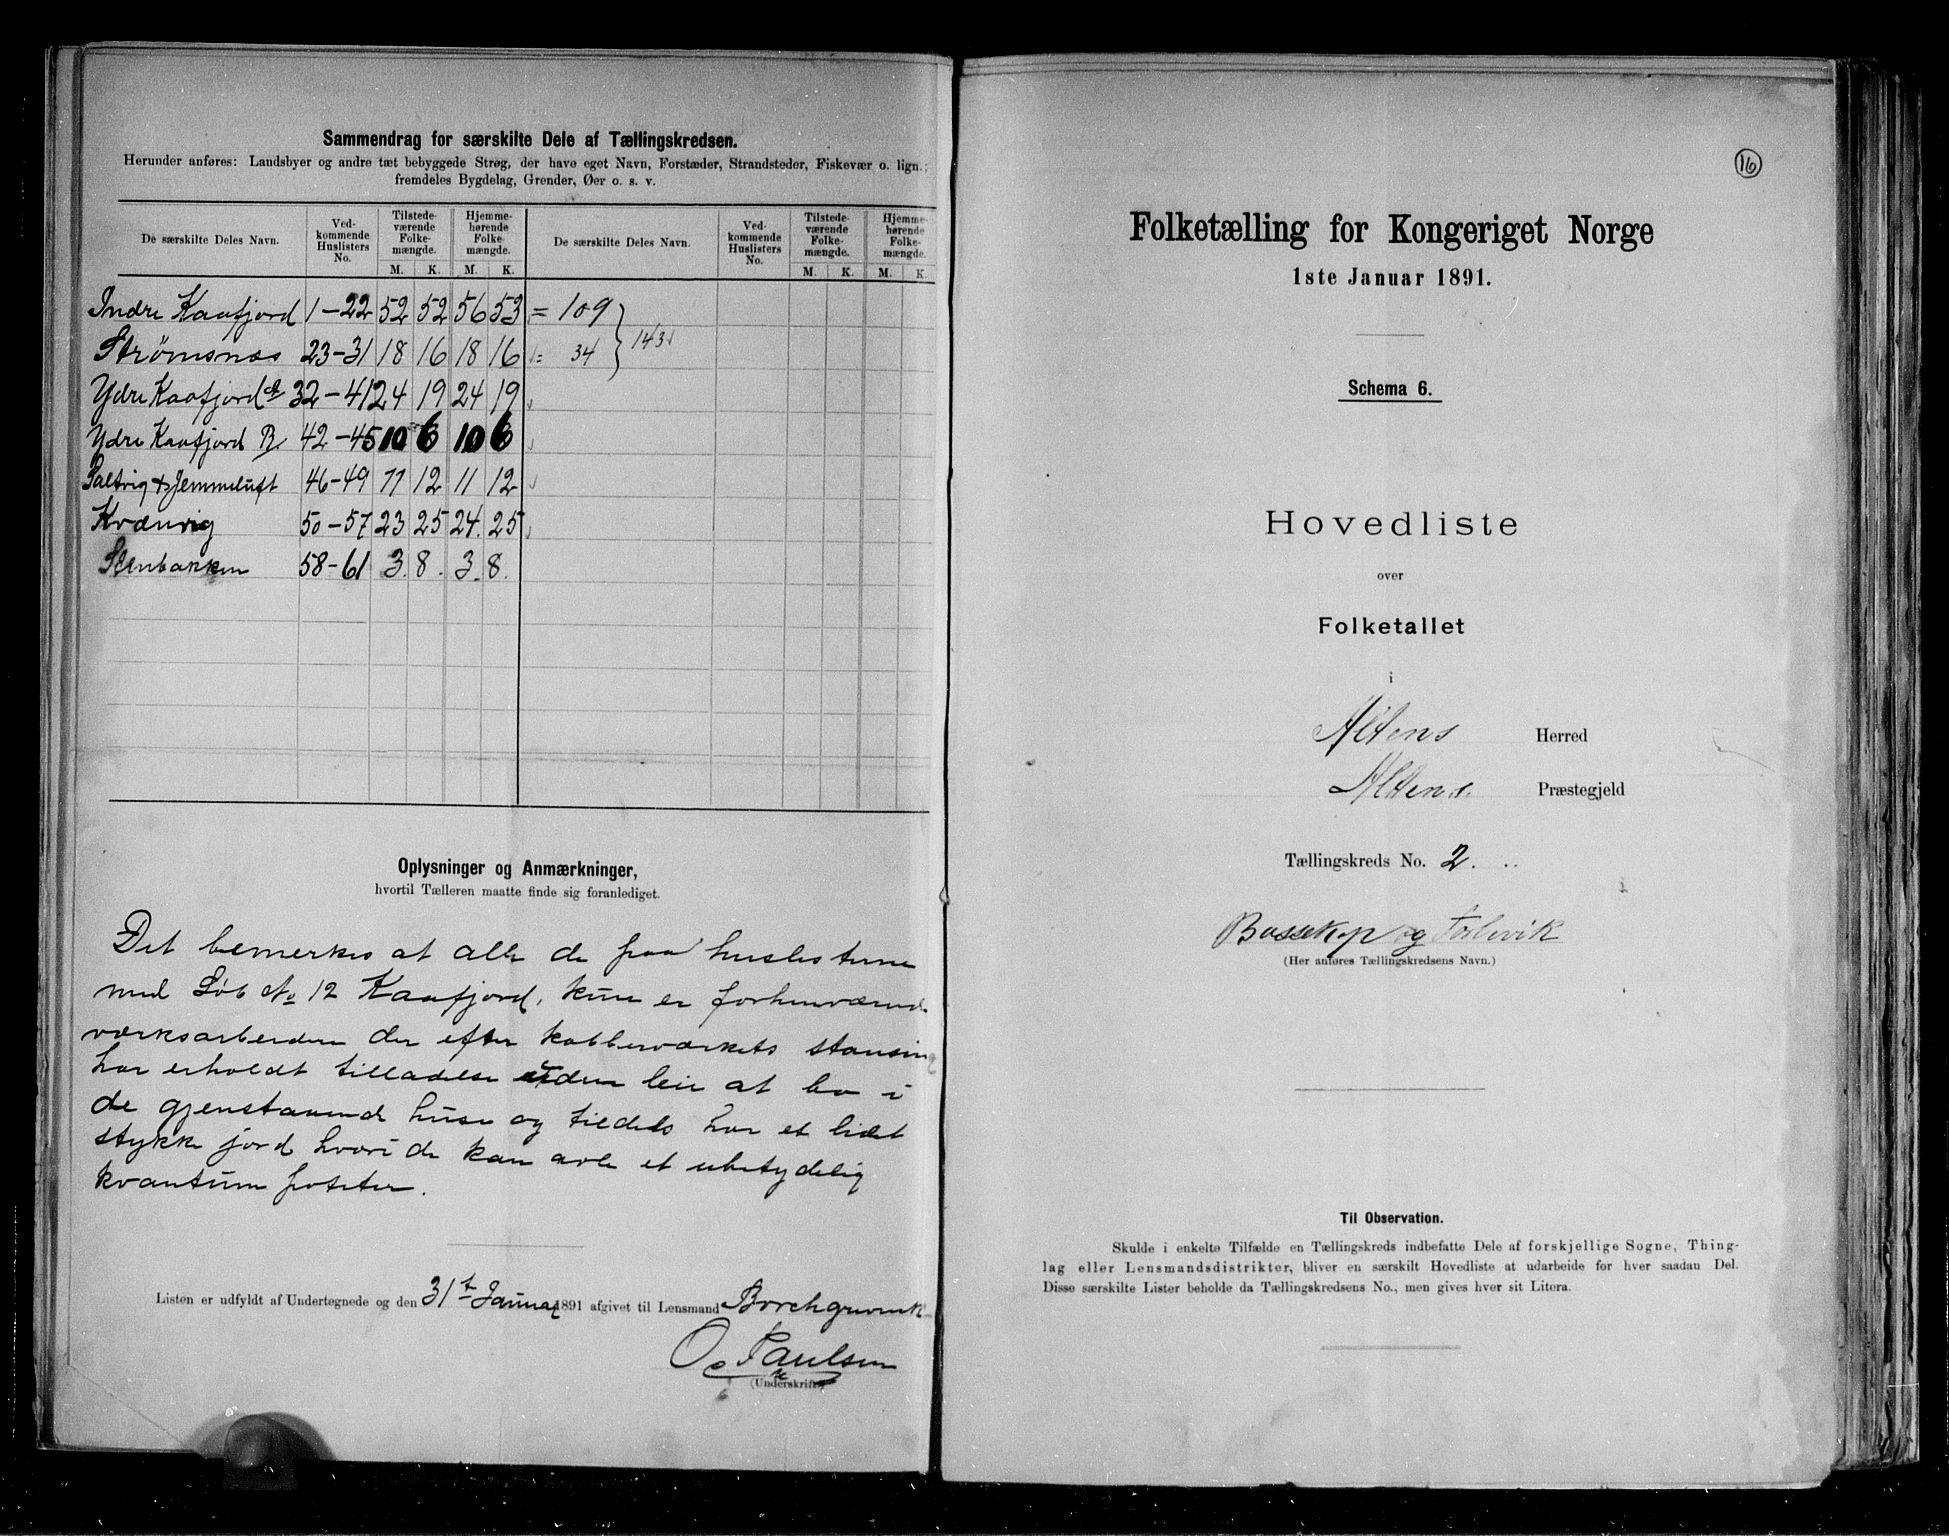 Sammendrag for særskilte Dele af Tællingskredsen.
Herunder anføres: Landsbyer og andre tæt bebyggede Strøg, der have eget Navn, Forstæder, Strandsteder, Fiskevær o. lign.;
fremdeles Bygdelag, Grender, Øer o. s. v.
De særskilte Deles Navn. Ved-kommende Huslisters No. Tilstede-værende Folke-mængde. M. K. Hjemme-hørende Folke-mængde. M. K. De særskilte Deles Navn. Ved-kommende Huslisters No. Tilstede-værende Folke-mængde. M. K. Hjemme-hørende Folke-mængde. M. K.
Indre Kaafjord 1-22 52 52 56 53 = 109
Strømsnæs 23-31 18 16 18 16 = 34 } 143
Ydre Kaafjord 32-41 24 19 24 19
Ydre Kaafjord B 42-45 10 6 10 6
Saltvig & Jemmeluft 46-49 11 12 11 12
Kvænvig 50-57 23 25 24. 25
Stenbakken 58-61 3. 8. 3. 8.
Oplysninger og Anmærkninger,
hvortil Tælleren maatte finde sig foranlediget.
Det bemerkes at alle de paa huslisterne
med Løb No 12 Kaafjord, kun er forhenværend
værksarbeidere der efter kobberværkets stansing
har erholdt tilladelse uden leie at bo i
de gjenstaaende huse og tildels har et lidet
stykke jord hvori de kan avle et ubetydelig
kvantum poteter.
Listen er udfyldt af Undertegnede og den 31t Januar 1891 afgivet til Lensmand Borchgrevink
O. Paulsen
(Underskrift)
16
Folketælling for Kongeriget Norge
1ste Januar 1891.
Schema 6.
Hovedliste
over
Folketallet
i
Altens Herred
Altens Præstegjeld
Tællingskreds No. 2.
Bossekop og
(Her anføres Tællingskredsens Navn.)
Til Observation.
Skulde i enkelte Tilfælde en Tællingskreds indbefatte Dele af forskjellige Sogne, Thing-
lag eller Lensmandsdistrikter, bliver en særskilt Hovedliste at udarbeide for hver saadan Del.
Disse særskilte Lister beholde da Tællingskredsens No., men gives hver sit Litera.